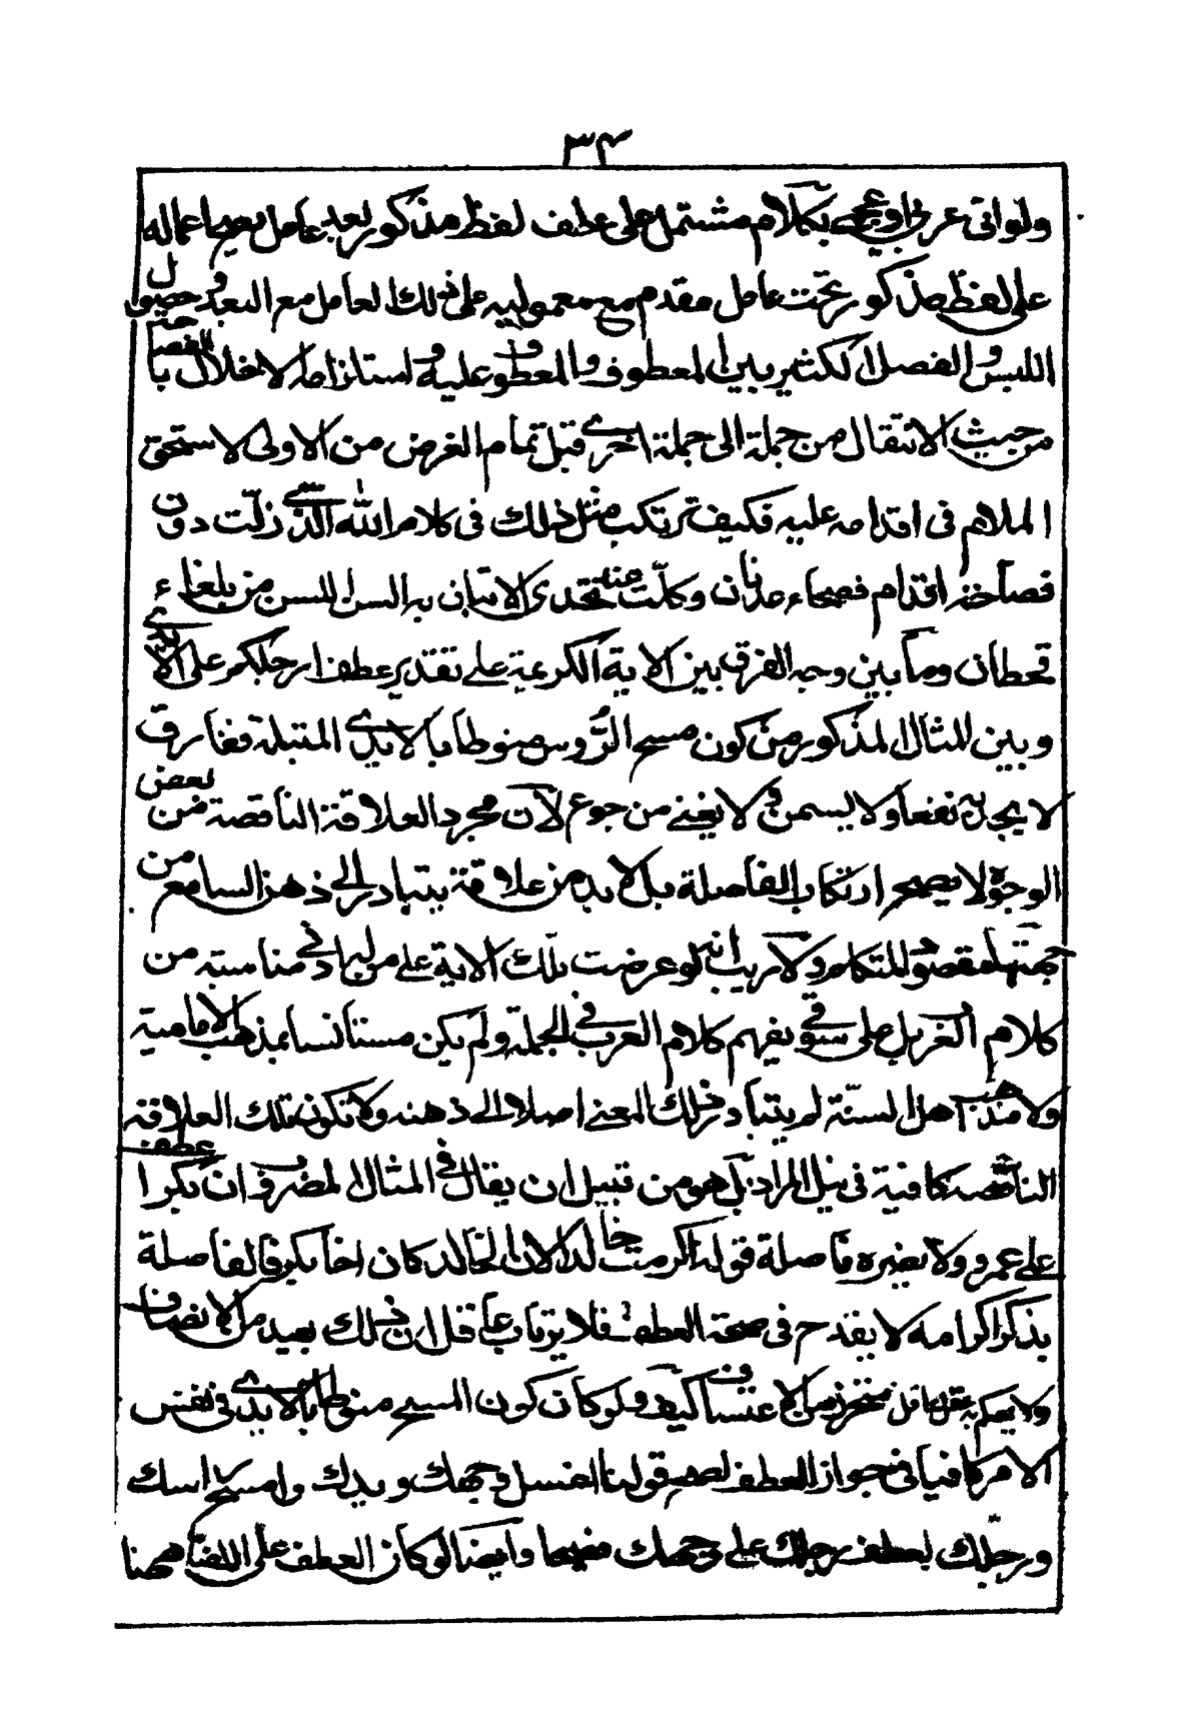 ٣٤
ولو اتى عربي او عجمي بكلام مشتمل على عطف لفظ مذكور بعد عامل يصح اعماله
على لفظ مذكور تحت عامل مقدم مع معموليه على ذلك العامل مع البعد و حصول
اللبس و الفصل الكثير بين المعطوف و المعطوف عليه و استلزامه الاخلال بالفصاحة
من حيث الانتقال من جملة الى جملة اخرى قبل تمام الغرض من الاولى لاستحق
الملام فى اقدامه عليه فكيف يرتكب مثل ذلك فى كلام الله الذى زلت دون
فصاحته اقدام فصحاء عدنان وكلّت عند تحدى الاتيان به السن اللسن من بلغاء
قحطان وما بين وجه الفرق بين الاية الكريمة على تقدير عطف ارجلكم على الايدى
وبين المثال المذكور من كون مسح الرؤس منوطا بالايدى المبتلة ففارق
لا يجديه نفعا ولا يسمن و لا يغنى من جوع لان مجرد العلاقة الناقصة من بعض
الوجوه لا يصحح ارتكاب الفاصلة بل لا بد من علاقة يتبادر الى ذهن السامع من
جهتها مقصود المتكلم ولا ريب انه لو عرضت تلك الاية على من له ادنى مناسبة من
كلام العرب على سوقى يفهم كلام العرب فى الجملة ولم يكن مستأنسا بمذهب الامامية
ولا مذهب اهل السنة لم يتبادر ذلك المعنى اصلا الى ذهنه ولا تكون تلك العلاقة
الناقصة كافية فى نيل المراد بل هو من قبيل ان يقال فى المثال المضروف ان عطف بكرا
على عمرو ولا يضيره فاصلة قولنا اكرمت خالدا لان الخالد كان اخا بكر فالفاصلة
بذكر اكرامه لا يقدح فى صحة العطف فلا يرتاب عاقل ان ذلك بعيد من الانصاف
ولا يحكم به عقل عاقل متحرز من الاعتساف كيف ولو كان كون المسح منوطا بالايدى فى نفس
الامر كافيا فى جواز العطف لصح قولنا اغسل وجهك ويدك وامسح راسك
ورجلك لعطف رجلك على وجهك فصيحا وايضا لو كان العطف على اللفظ ههنا